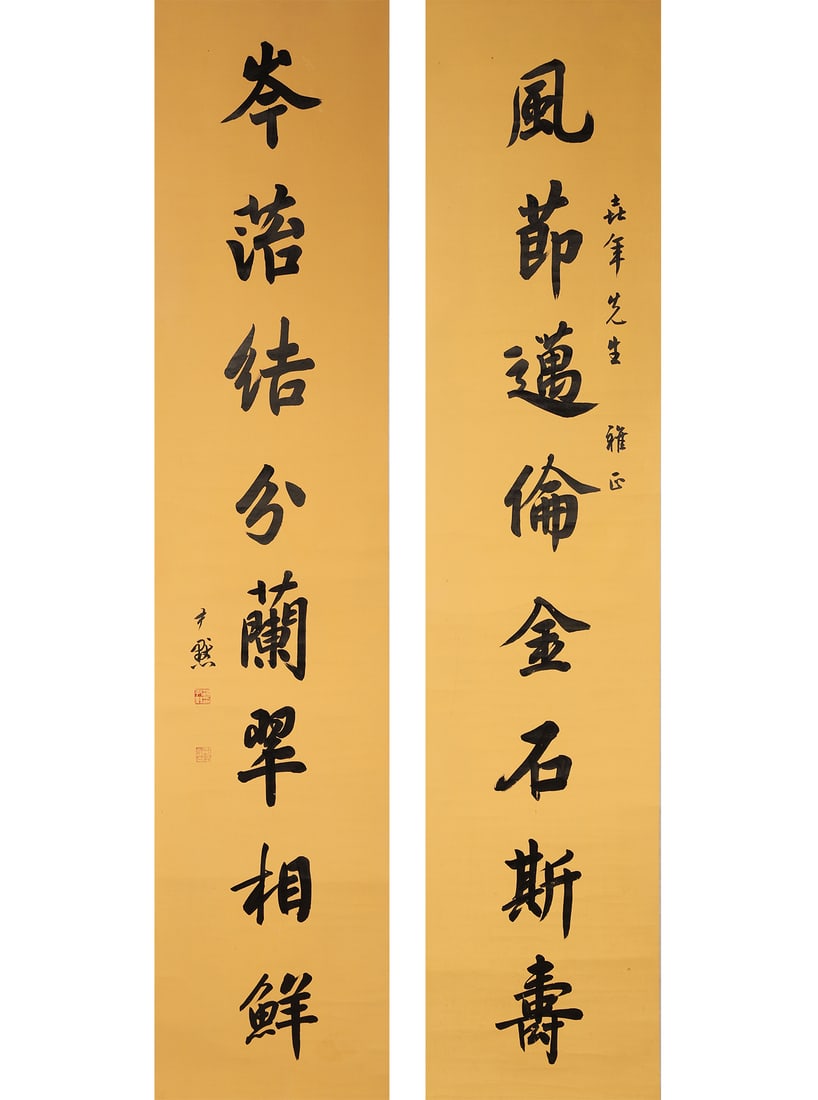 風節邁倫金石斯壽
垚年先生 雅正
岑落結分蘭翠相鮮
尹默